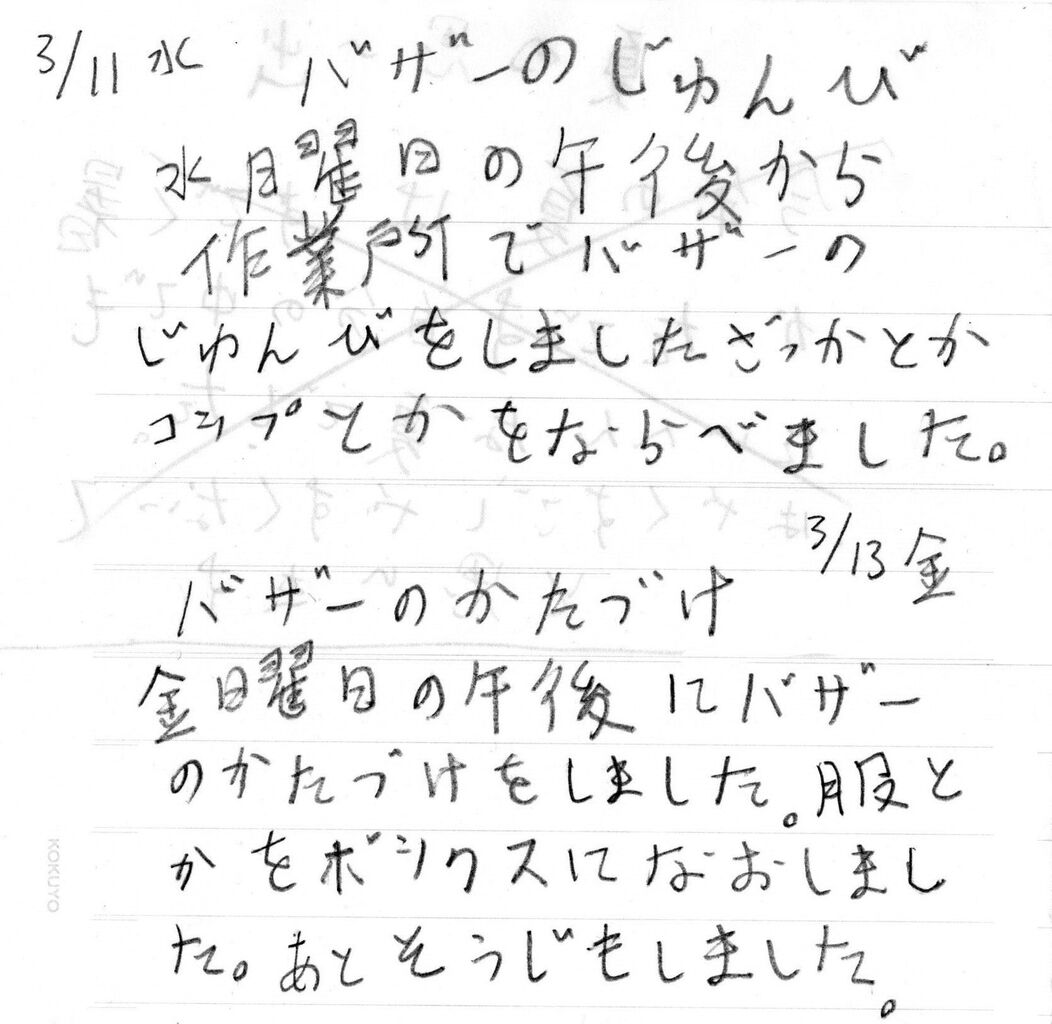 3/11 水 バザーのじゅんび
水曜日の午後から
作業所でバザーの
じゅんびをしましたざっかとか
コップとかをならべました。
3/13 金
バザーのかたづけ
金曜日の午後にバザー
のかたづけをしました。服と
かをボックスになおしまし
た。あとそうじもしました。
KOKUYO